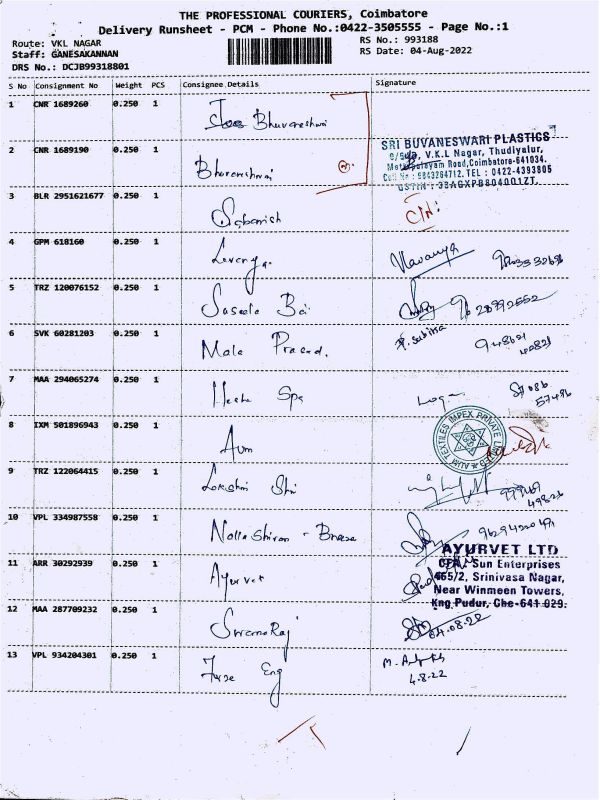 THE PROFESSIONAL COURIERS, Coimbatore
Delivery Runsheet - PCM - Phone No.:0422-3505555 - Page No.:1
Route: VKL NAGAR
RS No.: 993188
Staff: GANESAKANNAN
RS Date: 04-Aug-2022
DRS No.: DCJB99318801
S No Consignment No Weight PCS Consignee Details Signature
1 CNR 1689260 0.250 1 Bhuvaneshwari
2 CNR 1689190 0.250 1 Bhuvaneshwari
SRI BUVANESWARI PLASTICS
V.K.L Nagar, Thudiyalur,
Mettupalayam Road, Coimbatore-641034.
Cell No : 9843264712. TEL : 0422-4393805
GSTIN : 33AGXPB8040Q1ZT.
3 BLR 2951621677 0.250 1 Sabarish
4 GPM 618160 0.250 1 Lavanya.
5 TRZ 120076152 0.250 1 Suseela Bai
6 SVK 60281203 0.250 1 Mala Prasad.
7 MAA 294065274 0.250 1 Spa
Logan
8 IXM 501896943 0.250 1 Aum
AUM TEXTILES IMPEX PRIVATE LIMITED
9 TRZ 122064415 0.250 1 Lakshmi Shri
10 VPL 334987558 0.250 1 Nalla Shivan -
11 ARR 30292939 0.250 1 Ayurvet
AYURVET LTD
CFA, Sun Enterprises
465/2, Srinivasa Nagar,
Near Winmeen Towers,
Kng Pudur, Cbe-641 029.
12 MAA 287709232 0.250 1
04.08.22
13 VPL 934204301 0.250 1 Eng
4.8.22